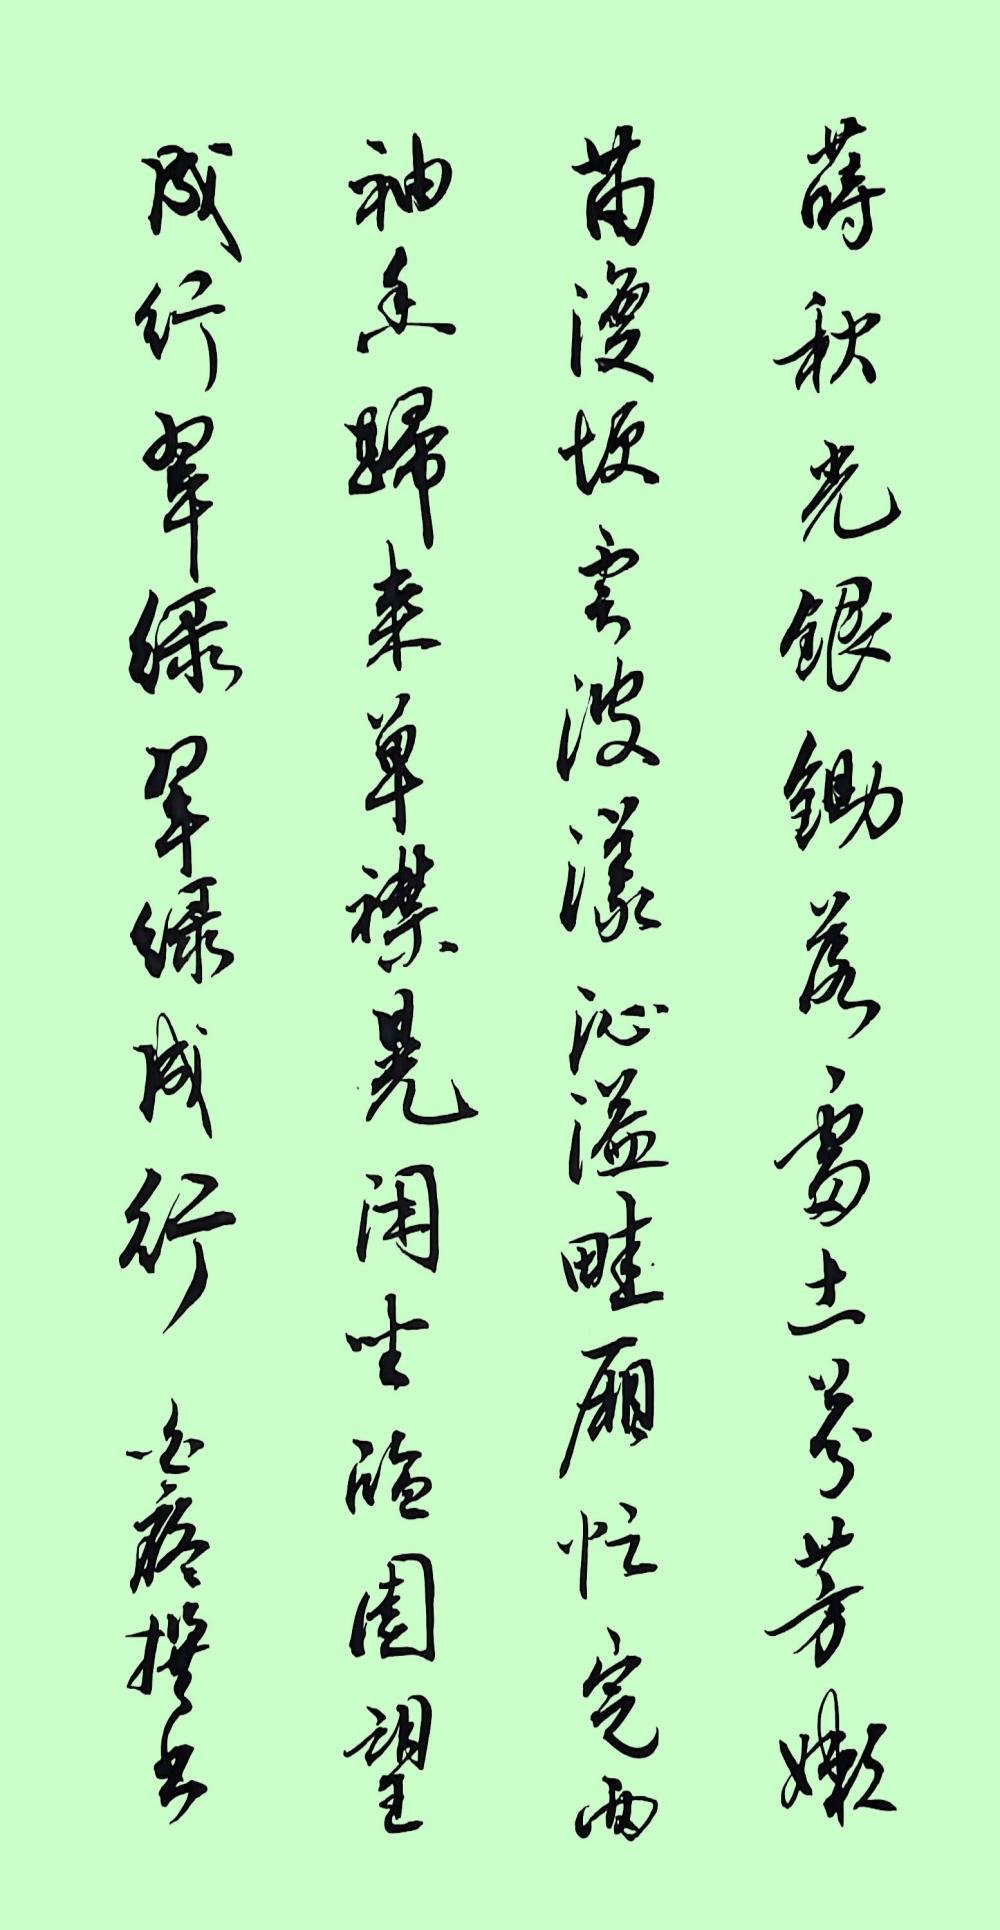 莳秋光银锄落处土芬芳嫩
苗漫埂云波漾沁溢畦厢忙完两
袖香歸来单襟晃闲坐临园望
成行翠绿翠绿成行 撰书